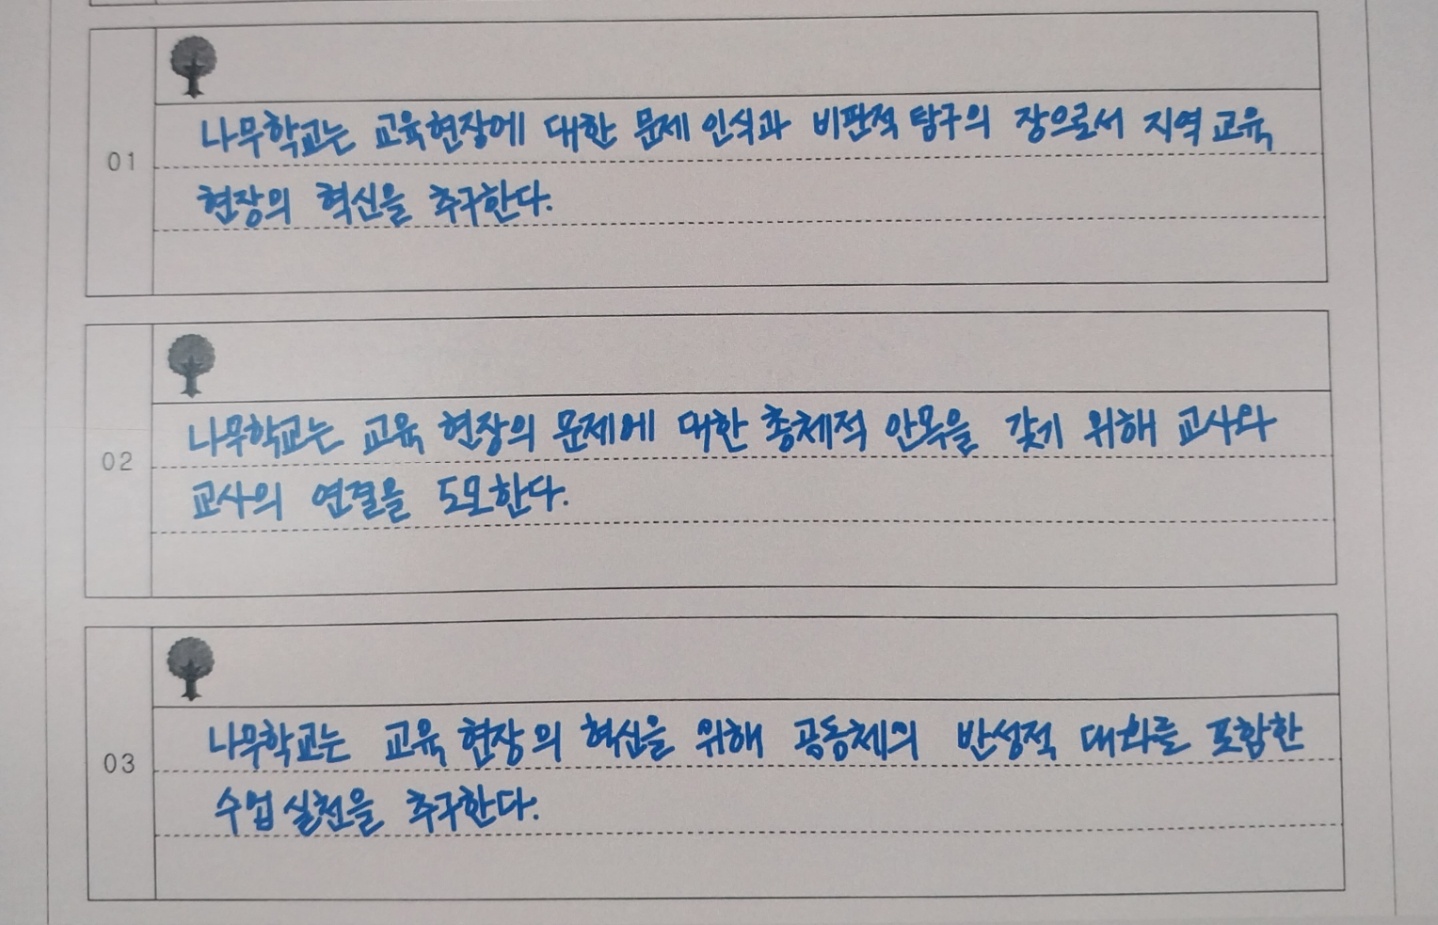 01
나무학교는 교육현장에 대한 문제 인식과 비판적 탐구의 장으로서 지역 교육
현장의 혁신을 추구한다.
02
나무학교는 교육 현장의 문제에 대한 총체적 안목을 갖기 위해 교사와
교사의 연결을 도모한다.
03
나무학교는 교육 현장의 혁신을 위해 공동체의 반성적 대화를 포함한
수업 실천을 추구한다.